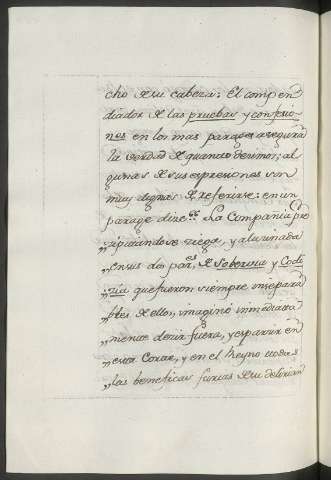 cho de su cabeza: el compen
diador de las pruebas y confesio-
nes en los mas parages asegura
la verdad de quanto decimos; al
gunas de sus expresiones son
muy dignas de referirse: en un
parage dize: La Compania pre
„cipitandose ciega, y alucinada
„en sus dos par.es de Soberbia y Codi
„cia que fueron siempre insepara
„bles de ellos, imaginó inmediata
„mente decir fuera, y esparcir en
„esta Corte, y en el Reyno todas
„las beneficas furias de su delirian